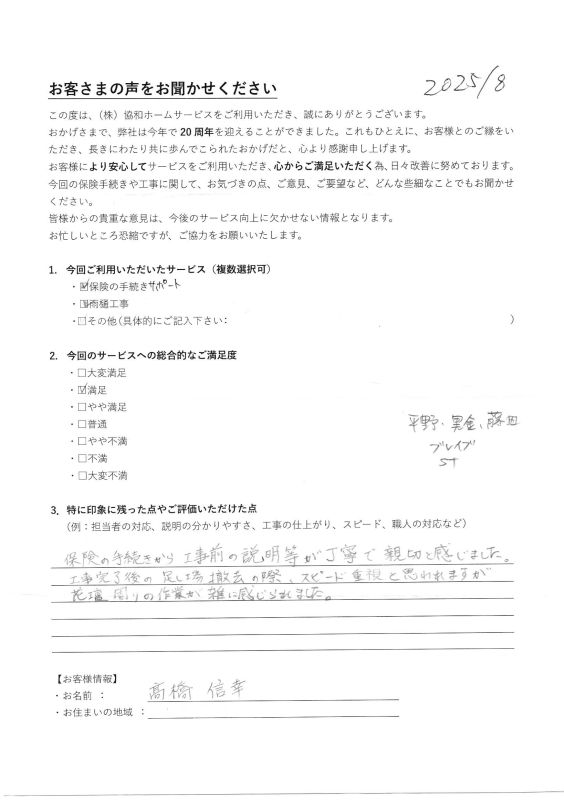 お客さまの声をお聞かせください
2025/8
この度は、(株)協和ホームサービスをご利用いただき、誠にありがとうございます。
おかげさまで、弊社は今年で20周年を迎えることができました。これもひとえに、お客様とのご縁をい
ただき、長きにわたり共に歩んでこられたおかげだと、心より感謝申し上げます。
お客様により安心してサービスをご利用いただき、心からご満足いただく為、日々改善に努めております。
今回の保険手続きや工事に関して、お気づきの点、ご意見、ご要望など、どんな些細なことでもお聞かせ
ください。
皆様からの貴重な意見は、今後のサービス向上に欠かせない情報となります。
お忙しいところ恐縮ですが、ご協力をお願いいたします。
1. 今回ご利用いただいたサービス(複数選択可)
・☑保険の手続きサポート
・☑雨樋工事
・□その他(具体的にご記入下さい: )
2. 今回のサービスへの総合的なご満足度
・□大変満足
・☑満足
・□やや満足
・□普通
・□やや不満
・□不満
・□大変不満
平野・実金、藤田
ブレイブ
ST
3. 特に印象に残った点やご評価いただけた点
(例:担当者の対応、説明の分かりやすさ、工事の仕上がり、スピード、職人の対応など)
保険の手続きから工事前の説明等が丁寧で親切と感じました。
工事完了後の足し場撤去の際、スピード重視と思われますが
花壇周りの作業が雑に感じられました。
【お客様情報】
・お名前 : 髙橋 信幸
・お住まいの地域 :